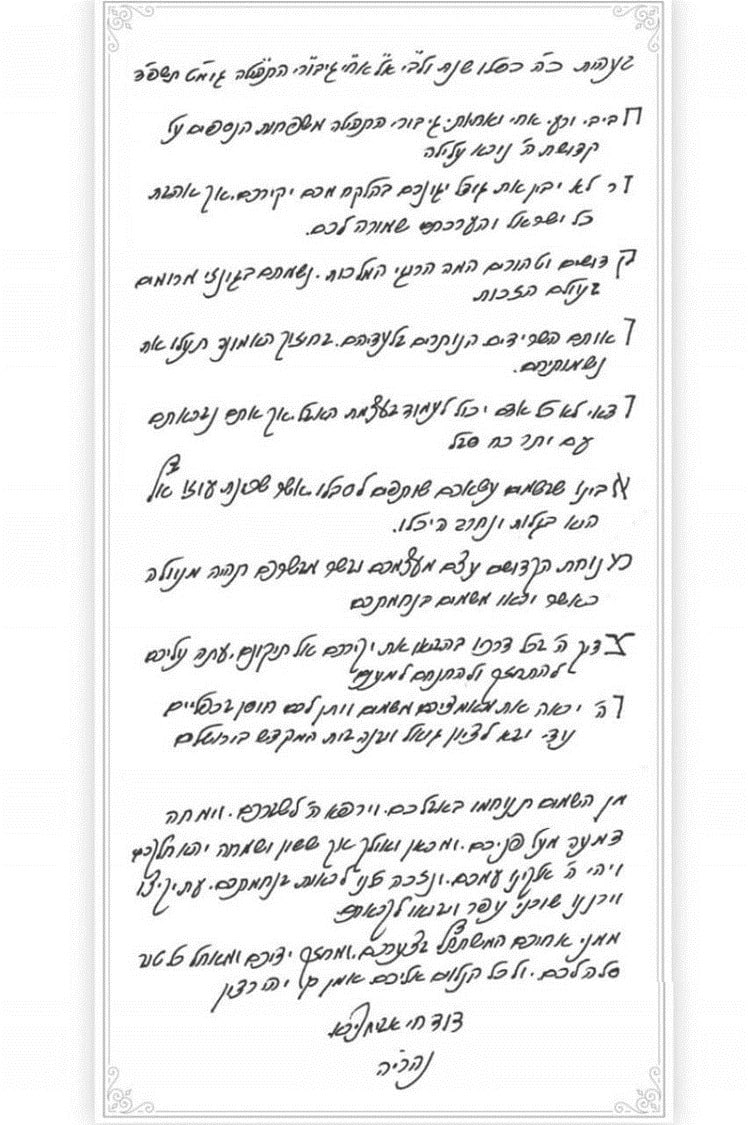 בעהות כ"ה כסלו שנת ולבני אל אחי גיבורי התהילה גומ"ט תשפ"ד
חביבי ורעי אחי ואחיות. גיבורי התהילה משפחות הנספים על
קדושת ה' נורא עלילה
זר לא יבין את גודל יגונכם בהלקח מכם יקירכם. אך אהבת
כל ישראל והערכתם שמורה לכם.
קדושים וטהורים המה הרוגי המלכות. נשמתם בגנזי מרומים
בעולם הזכות
ואותם השרידים הנותרים בלעדיהם. בחיזוק האמונה תעלו את
נשמותיהם.
ודאי לא כל אדם יכול לעמוד בעצמת האבל. אך אתם נבראתם
עם יתר כח סבל
אבינו שבשמים עשאכם שותפים לסבלו. אשר שכינת עוזו
הוא בגלות ונחרב היכלו.
מנוחת הקדושים עצם מעצמכם ובשר מבשרכם תהיה מעולה
כאשר יראו משמים בנחמתכם
צדיק ה' בכל דרכיו בהביאו את יקירכם אל תיקונם. עתה עליכם
להתחזק ולהתנחם למענם
וה' יראה את מאמציכם משמים ויתן לכם חוסן בכפליים
עדי יבא לציון גואל ויבנה בית המקדש בירושלים
מן השמים תנוחמו באבלכם. וירפא ה' לשברכם. וימחה
דמעה מעל פניכם. ומכאן ואילך אך ששון ושמחה יהא חלקכם
ויהי ה' אלקינו עמכם. ונזכה כולנו לראות בנחמתכם. עת יקיצו
וירננו שוכני עפר ויבואו לקראתם.
ממני אחיכם המשתתף בצערכם. ומחזק ידיכם ומאחל כל טוב
סלה לכם. ולכל הנלוים אליכם אמן כן יהי רצון
דוד חי אבוחצירא
נהריה